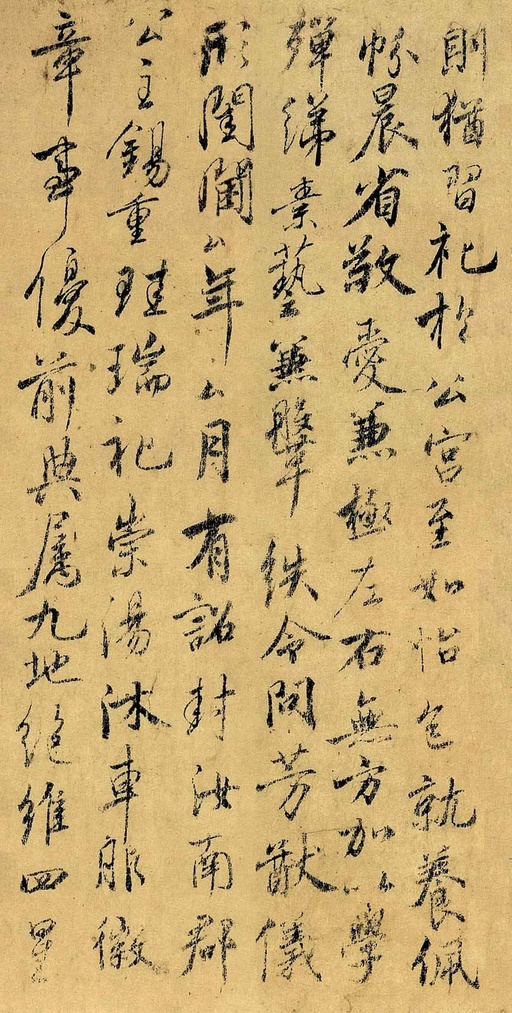 則猶習祀於公宮至如怡色就養佩
帉晨省敬愛兼極左右無方加以學
殫綈素藝兼鞶紩令問芳猷儀
形閨閫厶年厶月有詔封汝南郡
公主錫重珪瑞祀崇湯沐車服徽
章事優前典属九地絕維四星